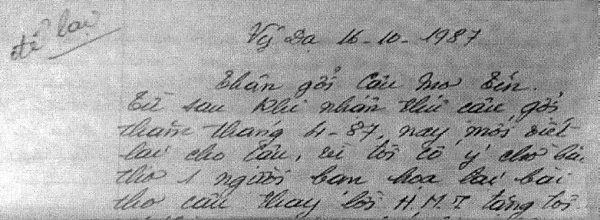 để lại
Vỹ Dạ 16-10-1987
Thân gởi Cậu Mợ Tín.
Từ sau khi nhận thư cậu gởi
thăm tháng 4-87, nay mới viết
lại cho cậu, vì tôi có ý chờ bài
thơ 1 người bạn họa lại bài
thơ cậu thay lời H.M.T tặng tôi